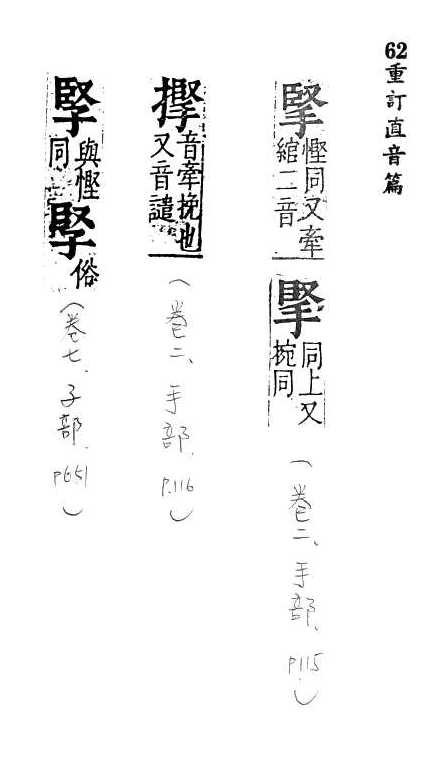 62重訂直音篇
掔
慳同又牽
綰二音
同上又
捥同
(卷二、手部、P.115)
音牽挽也
又音譴
(卷二、手部、P.116)
孯
與慳
同
俗
(卷七、子部、P651)